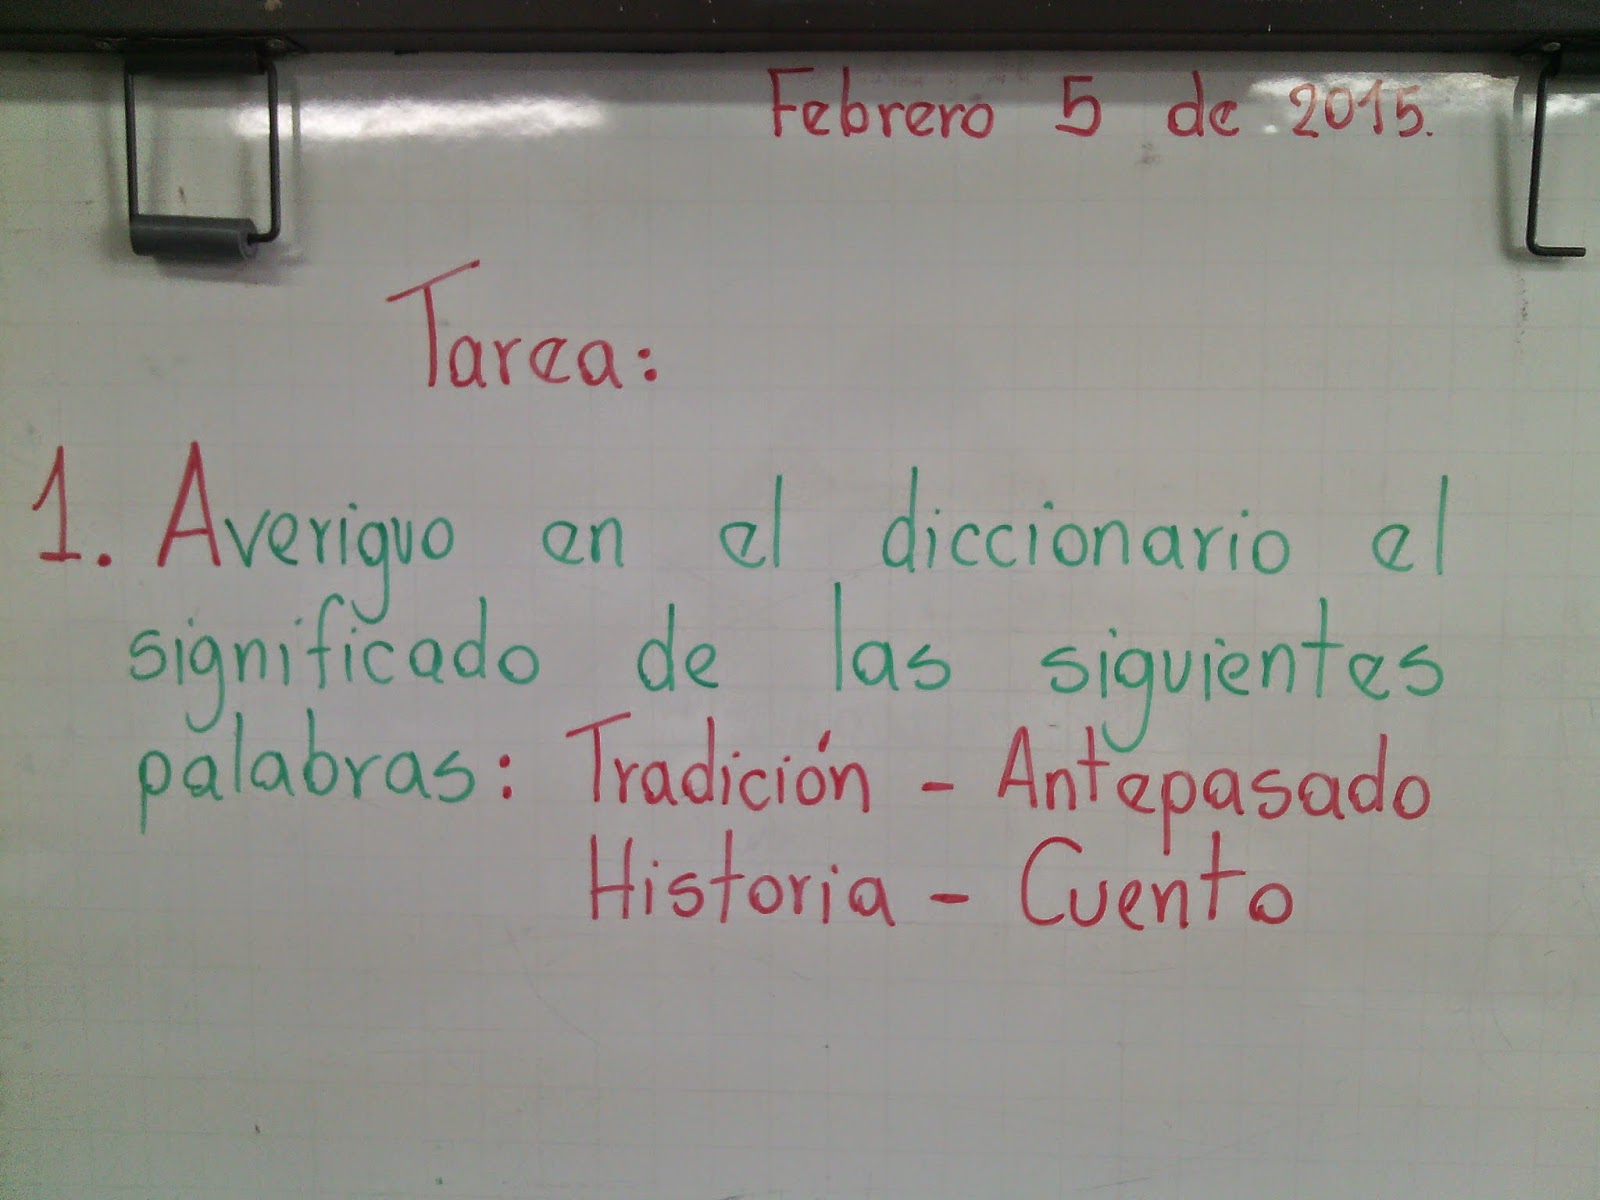 Febrero 5 de 2015.
Tarea:
1. Averiguo en el diccionario el
significado de las siguientes
palabras: Tradición - Antepasado
Historia - Cuento